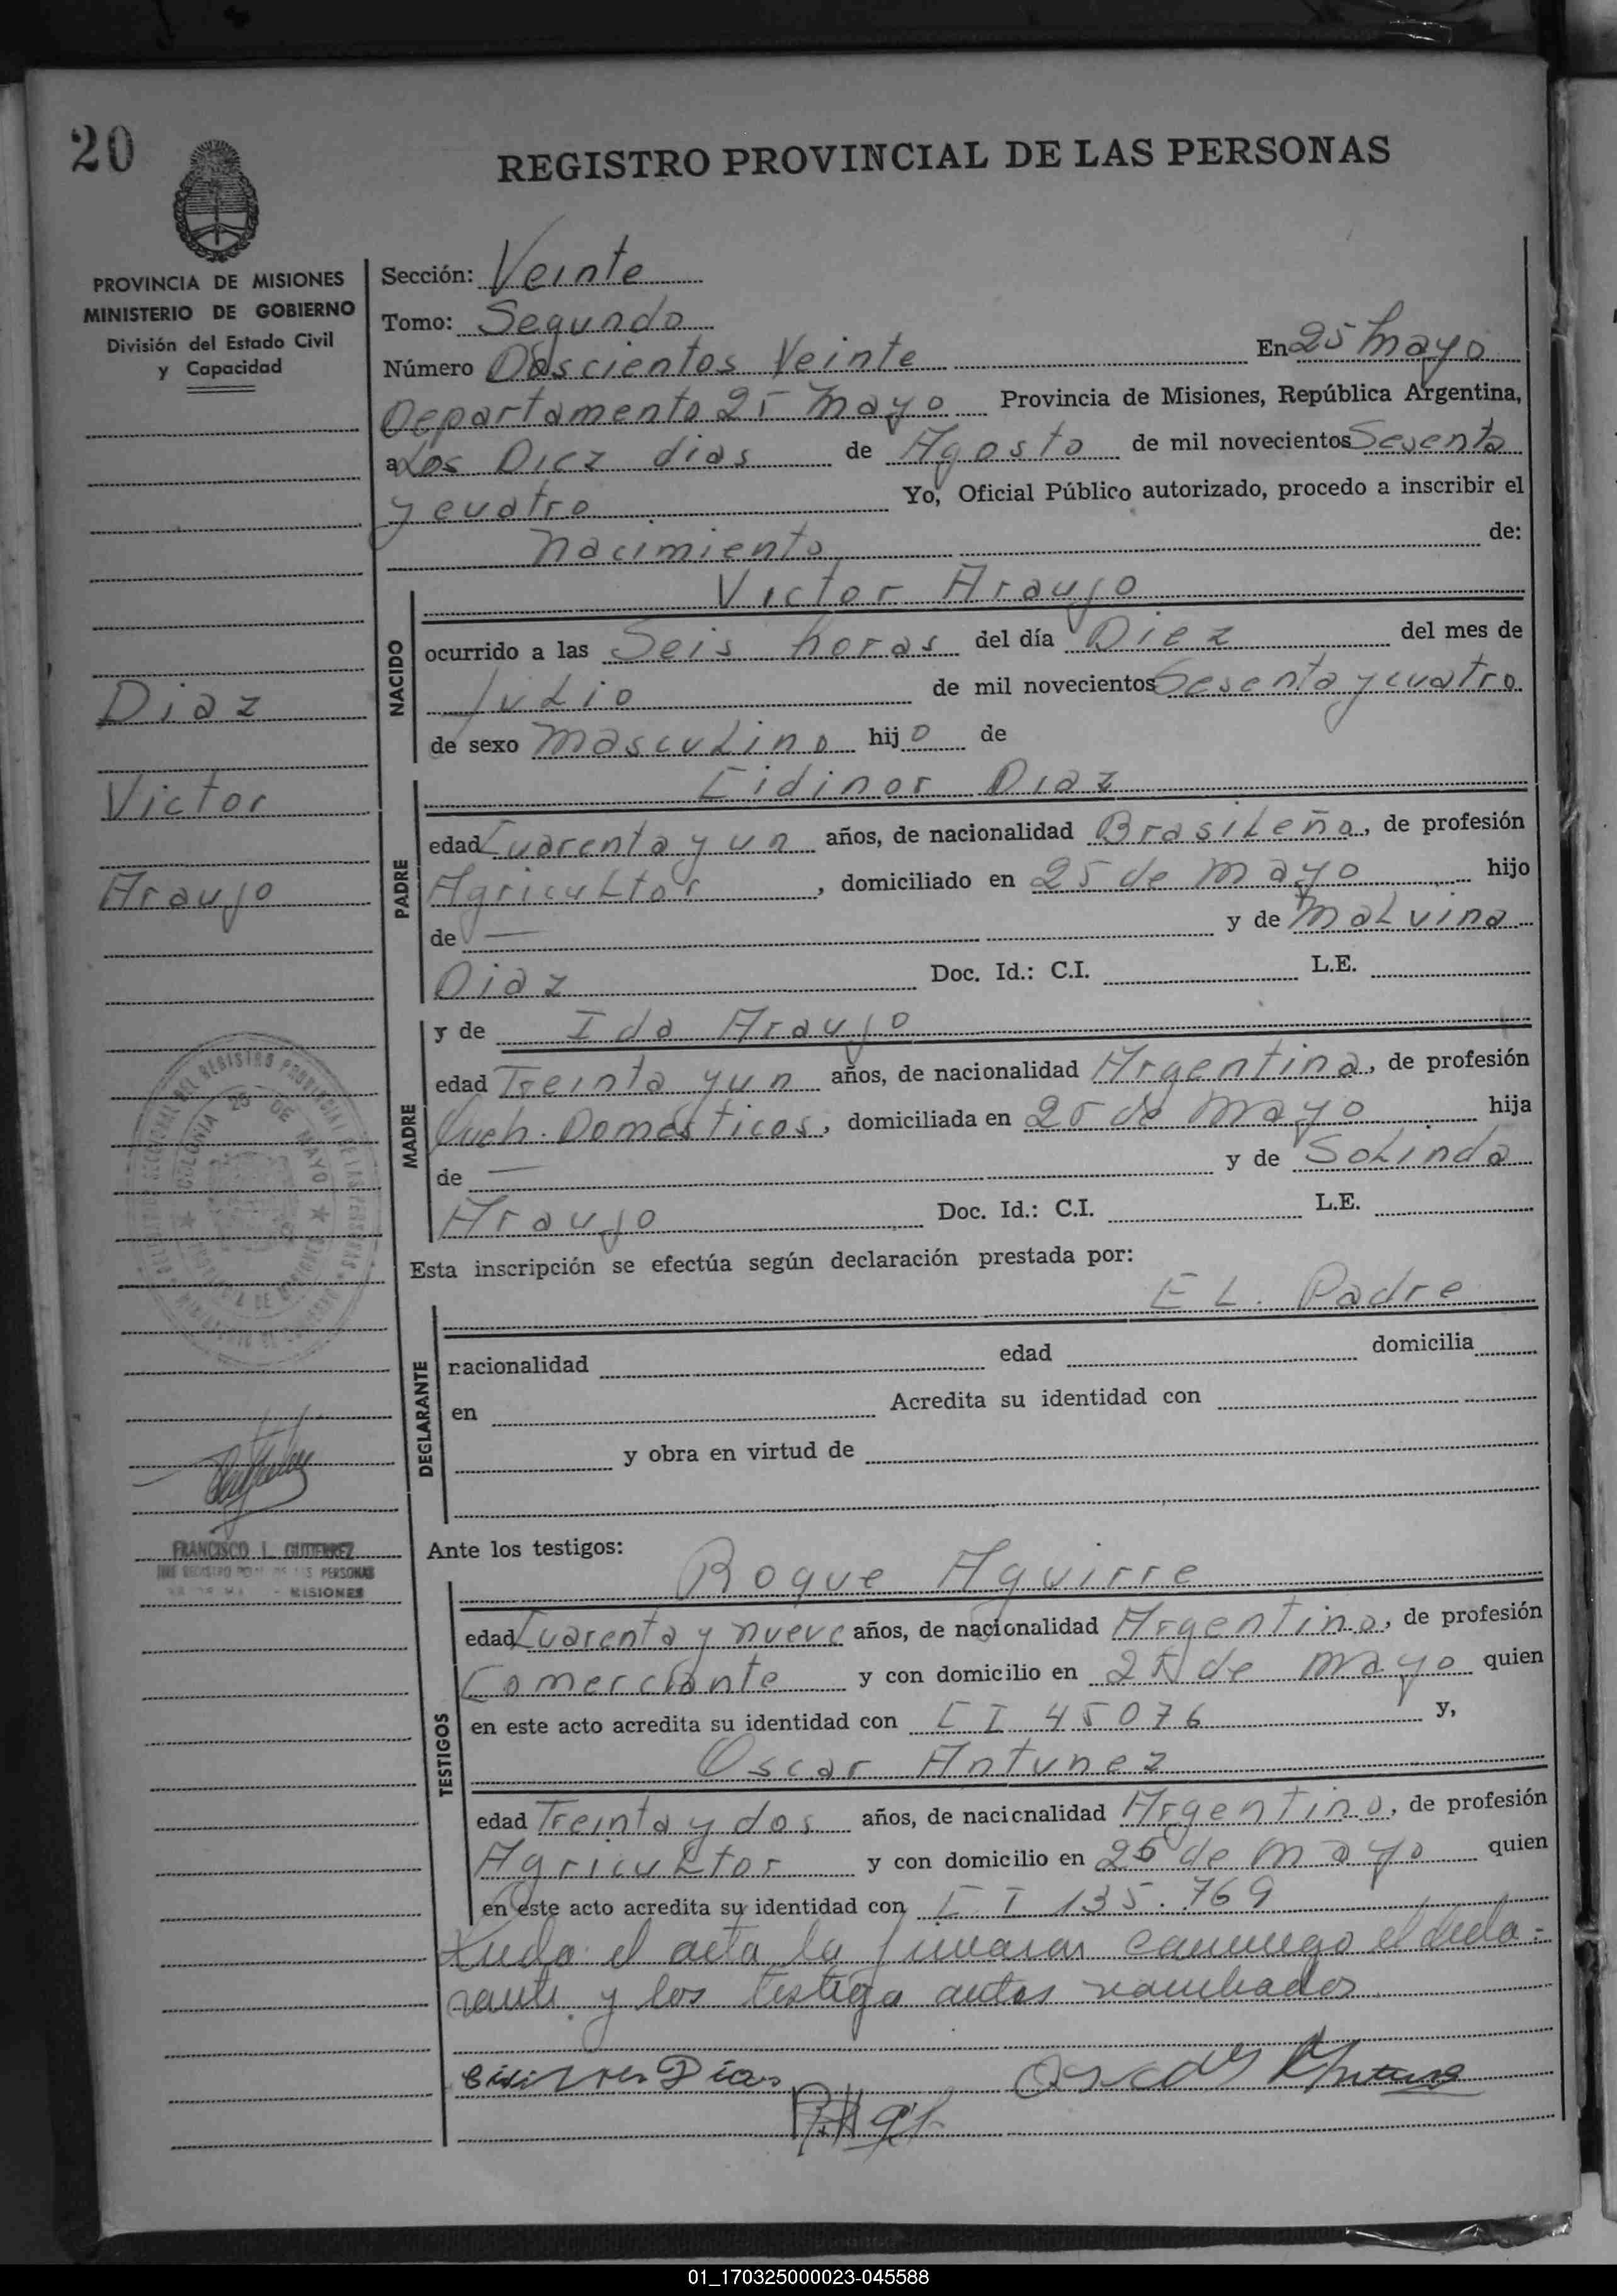 20
REGISTRO PROVINCIAL DE LAS PERSONAS
PROVINCIA DE MISIONES
MINISTERIO DE GOBIERNO
División del Estado Civil
y Capacidad
Sección: Veinte
Tomo: Segundo
Número Doscientos Veinte En 25 Mayo
Departamento 25 Mayo Provincia de Misiones, República Argentina,
a Los Diez dias de Agosto de mil novecientos Sesenta
y cuatro Yo, Oficial Público autorizado, procedo a inscribir el
Nacimiento de:
Victor Araujo
NACIDO
ocurrido a las Seis horas del día Diez del mes de
Julio de mil novecientos Sesenta y cuatro
de sexo Masculino hijo de
Diaz
Victor
Araujo
Eidinor Diaz
PADRE
edad Cuarenta y un años, de nacionalidad Brasileña, de profesión
Agricultor, domiciliado en 25 de Mayo hijo
de — y de Malvina
Diaz Doc. Id.: C.I. L.E.
MADRE
y de Ida Araujo
edad Treinta y un años, de nacionalidad Argentina, de profesión
Queh. Domésticos, domiciliada en 25 de Mayo hija
de — y de Solinda
Araujo Doc. Id.: C.I. L.E.
COLONIA 25 DE MAYO
Esta inscripción se efectúa según declaración prestada por:
EL. Padre
DECLARANTE
nacionalidad edad domicilia
en Acredita su identidad con
y obra en virtud de
FRANCISCO L. GUTIERREZ
PERSONAS
MISIONES
Ante los testigos:
Roque Aguirre
TESTIGOS
edad Cuarenta y nueve años, de nacionalidad Argentino, de profesión
Comerciante y con domicilio en 25 de Mayo quien
en este acto acredita su identidad con C I 45076 y,
Oscar Antunez
edad Treinta y dos años, de nacionalidad Argentino, de profesión
Agricultor y con domicilio en 25 de Mayo quien
en este acto acredita su identidad con C I 135.769
Leida el acta la firmaron conmigo el decla-
rante y los testigo antes nombrados.
Diaz
Oscar
01_170325000023-045588